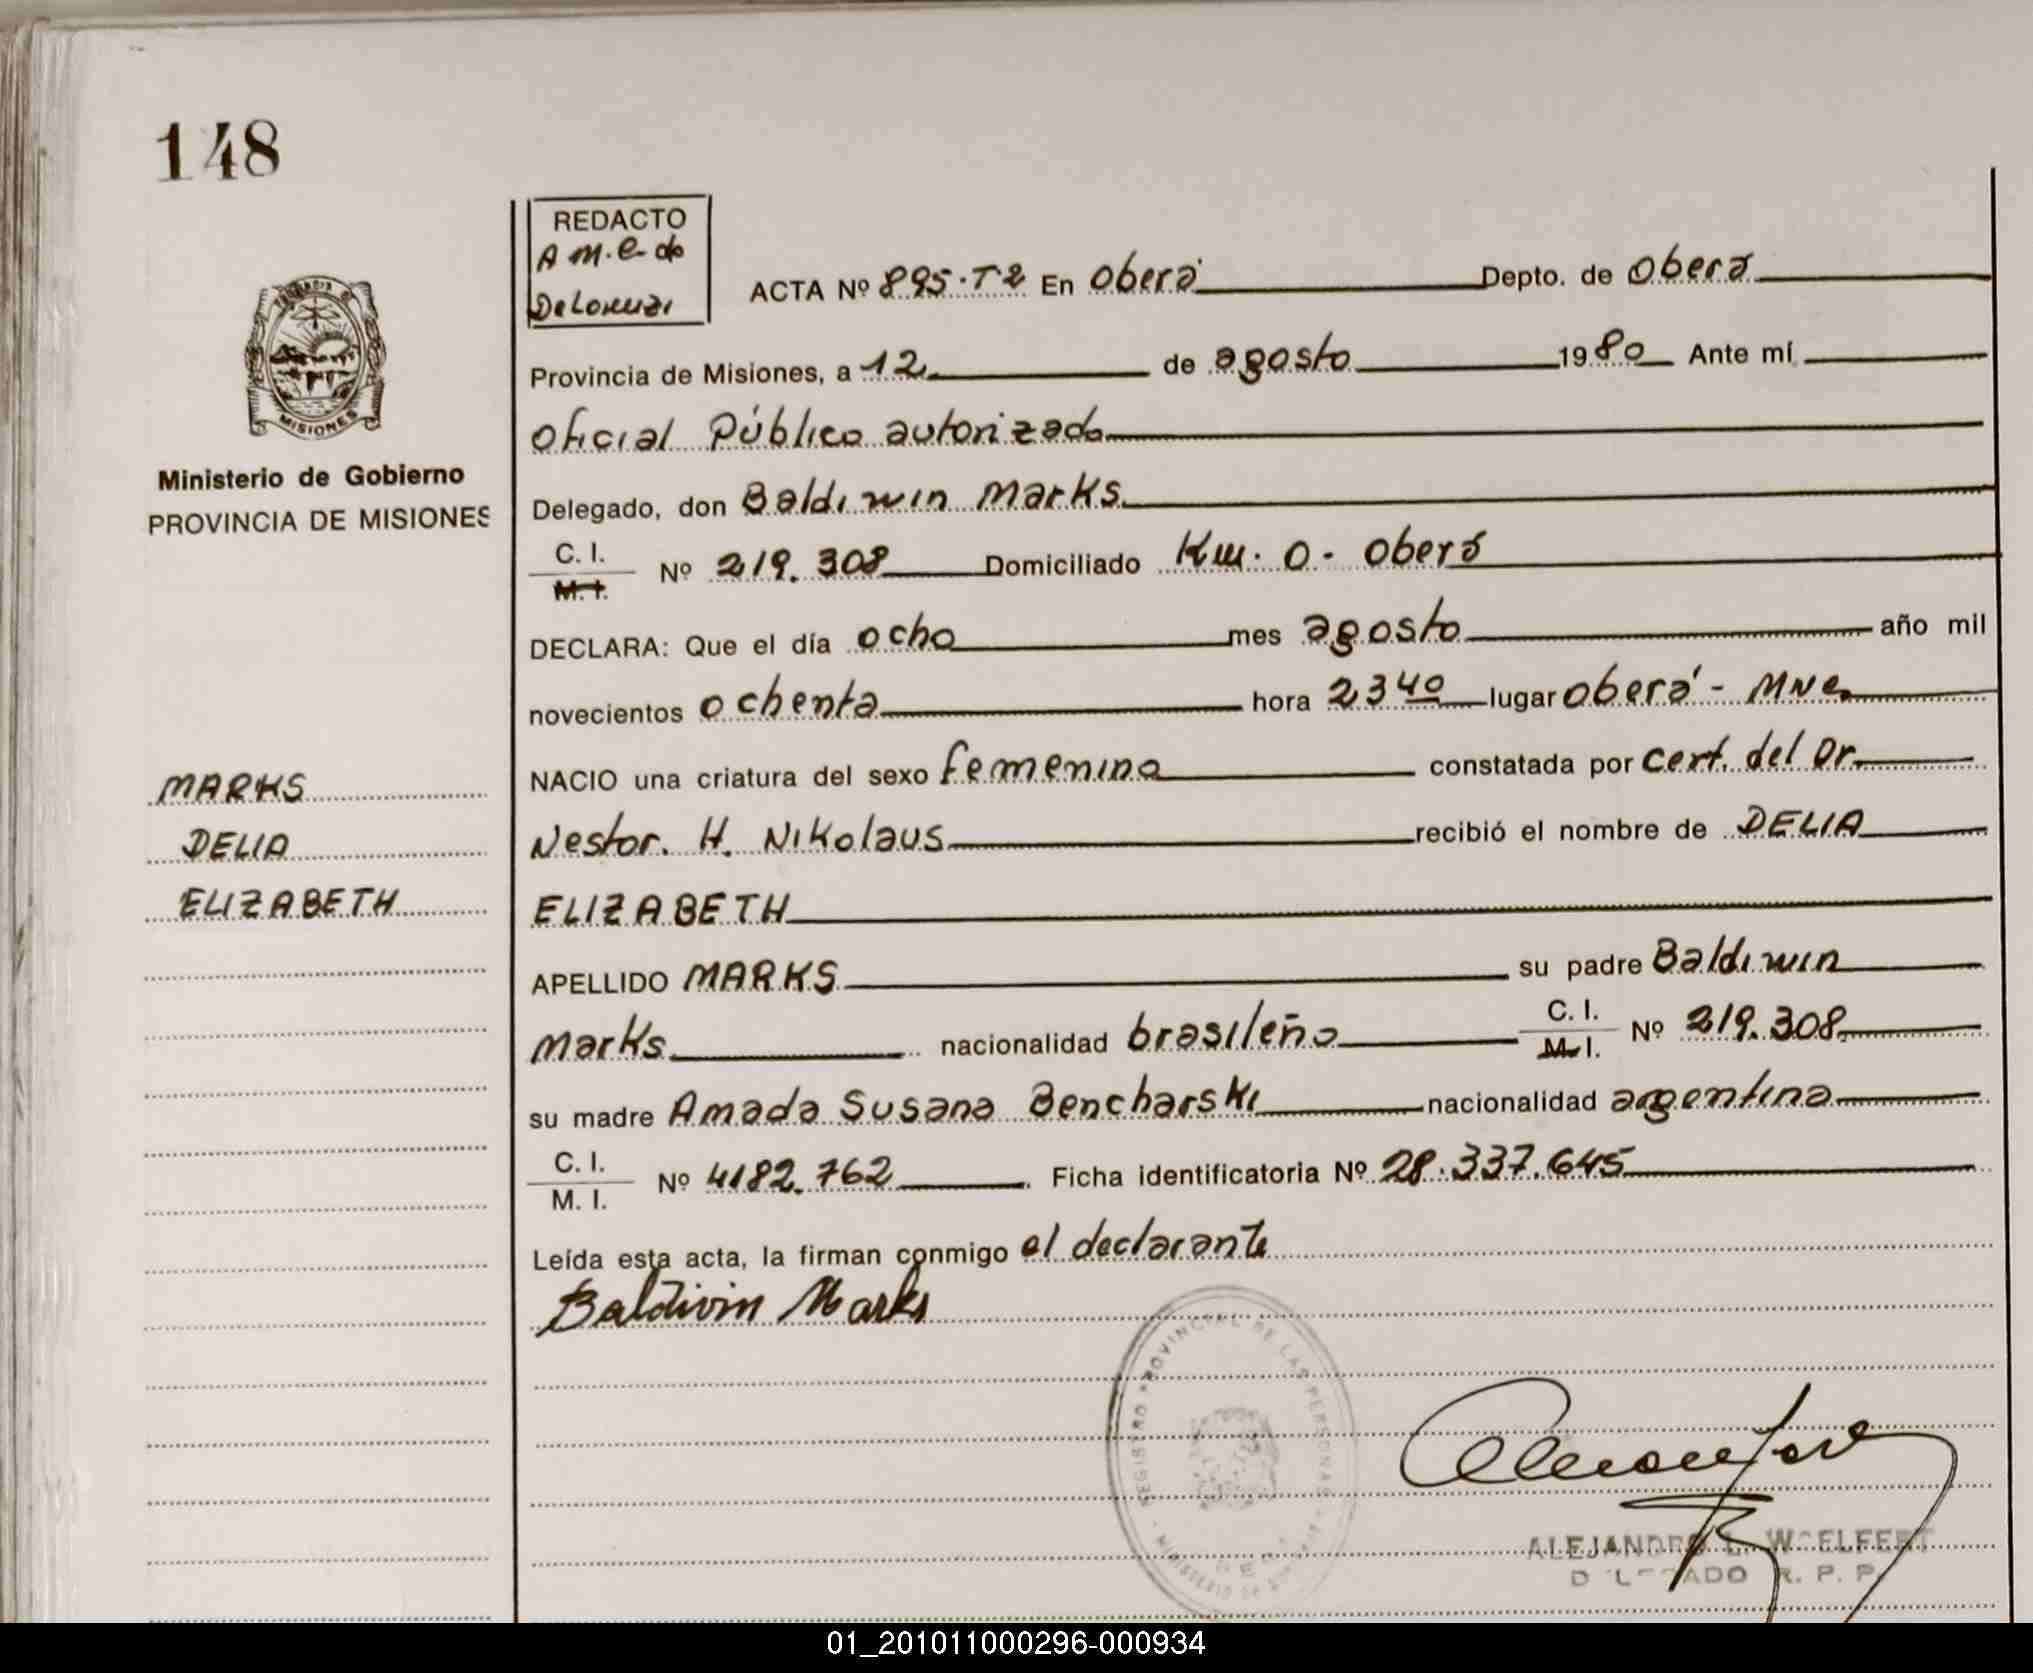 148
REDACTO
A M. C. de
DeLorenzi
ACTA Nº 895-T2 En Oberá Depto. de Oberá
Provincia de Misiones, a 12 de agosto 1980 Ante mí
Oficial Público autorizado
Delegado, don Baldiwin Marks
C. I.
M. I. Nº 219.308 Domiciliado Km. 0 - Oberá
DECLARA: Que el día ocho mes agosto año mil
novecientos ochenta hora 23 40 lugar Oberá - Mnes
NACIO una criatura del sexo femenino constatada por cert. del Dr.
Nestor. H. Nikolaus recibió el nombre de DELIA
ELIZABETH
APELLIDO MARKS su padre Baldiwin
Marks nacionalidad brasileño C. I.
M. I. Nº 219.308
su madre Amada Susana Bencharski nacionalidad argentina
C. I.
M. I. Nº 4182.762 Ficha identificatoria Nº 28.337.645
Leída esta acta, la firman conmigo el declarante
Baldivin Marks
PROVINCIA DE
MISIONES
Ministerio de Gobierno
PROVINCIA DE MISIONES
MARKS
DELIA
ELIZABETH
REGISTRO PROVINCIAL DE LAS PERSONAS
MINISTERIO DE
ALEJANDRO L. WOELFERT
DELEGADO R. P. P.
01_201011000296-000934